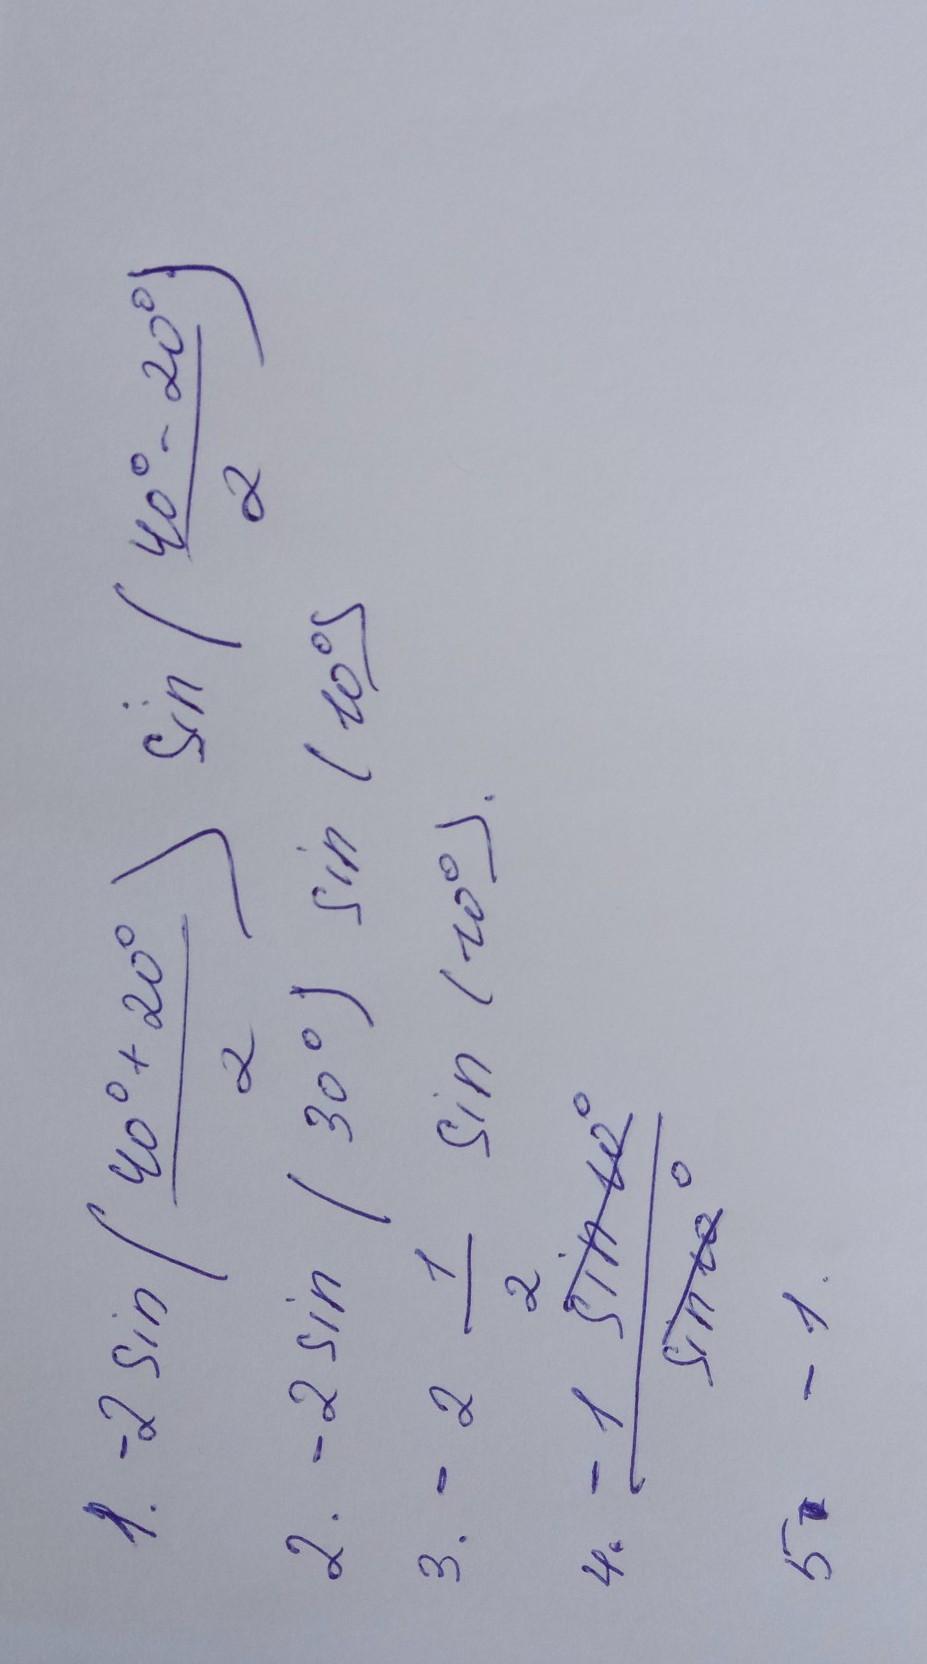 1. -2 sin ( (40° + 20°) / 2 ) sin ( (40° - 20°) / 2 )
2. -2 sin (30°) sin (10°)
3. - 2 1/2 sin (10°).
4. - 1 sin 10° / sin 10°
5. - 1.